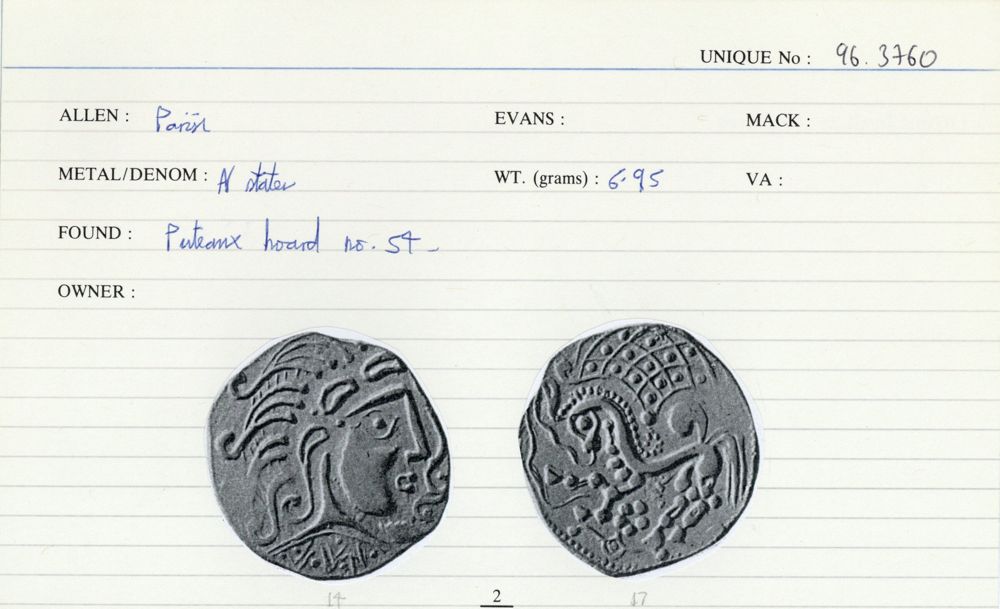 UNIQUE No : 96.3760
ALLEN : Parisii EVANS : MACK :
METAL/DENOM : N stater WT. (grams) : 6.95 VA :
FOUND : Puteaux hoard no. 54
OWNER :
14 2 17